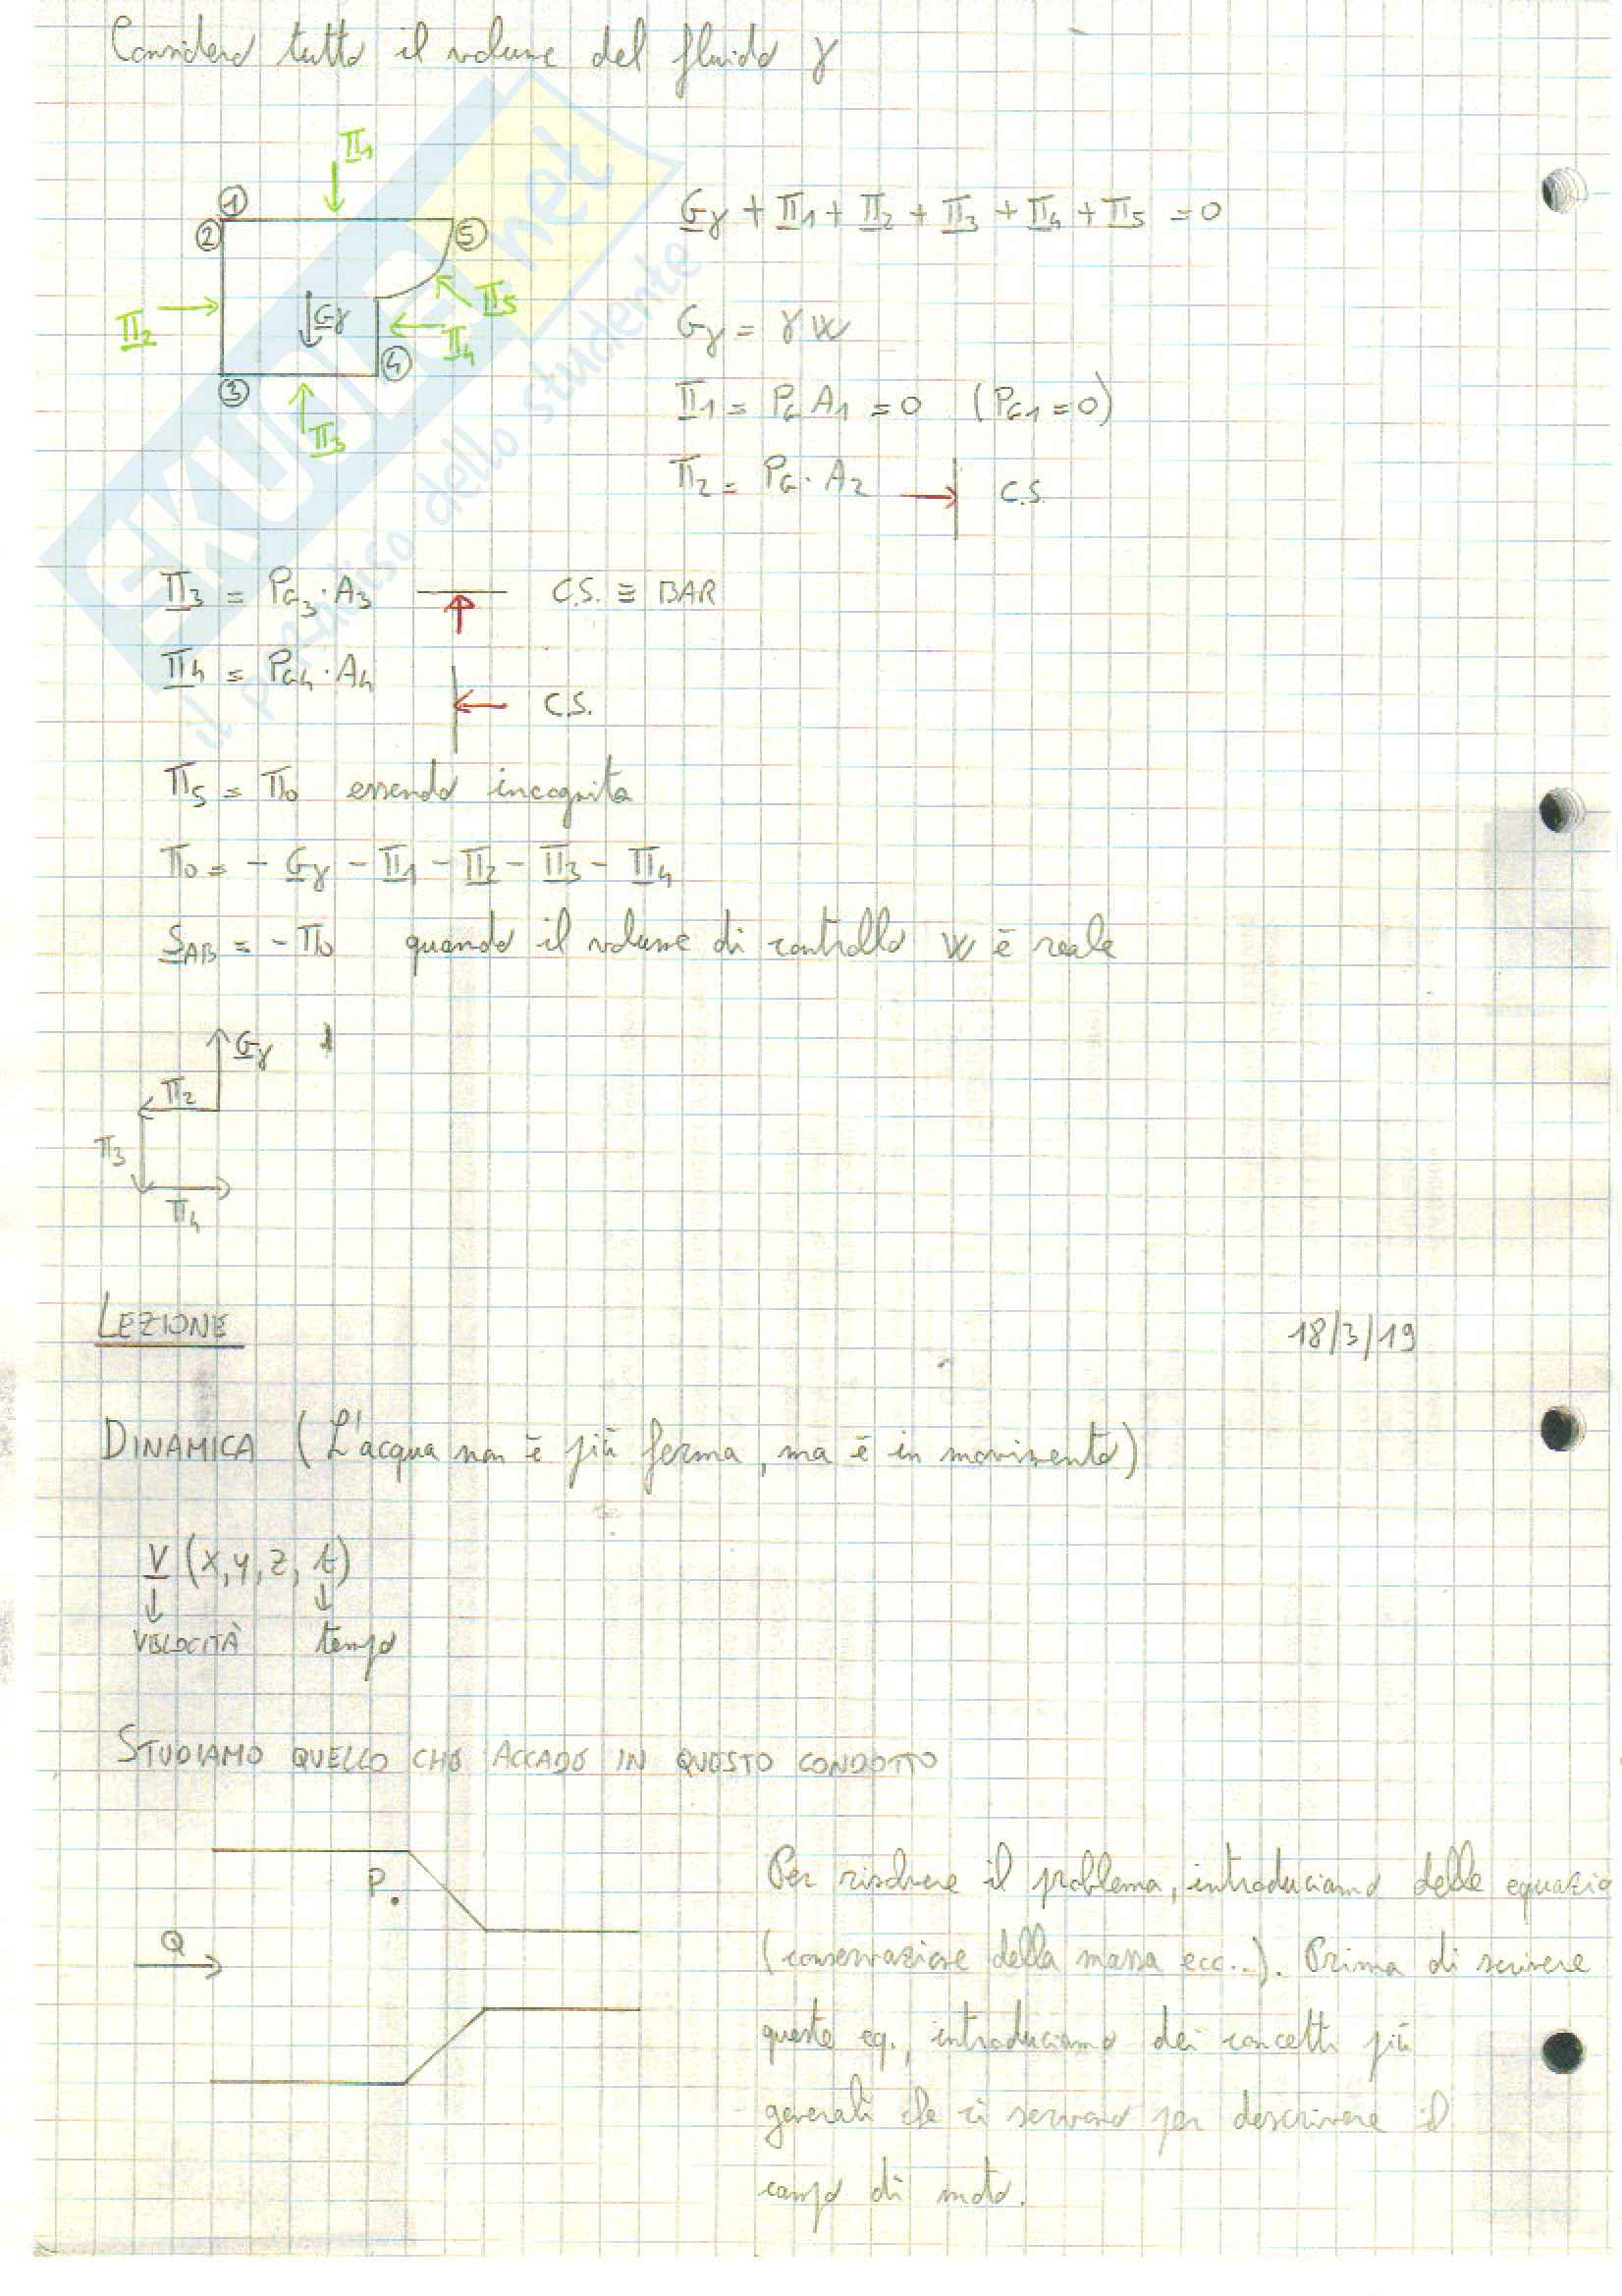 Considero tutto il volume del fluido γ
Π1
1
2
5
G̲γ + Π̲1 + Π̲2 + Π̲3 + Π̲4 + Π̲5 = 0
Π2
G̲γ
Π5
Π4
4
3
Π3
Gγ = γ W
Π̲1 = PG A1 = 0 (PG1 = 0)
Π2 = PG · A2 C.S.
Π̲3 = PG3 · A3 C.S. ≡ BAR
Π̲4 = PG4 · A4 C.S.
Π5 = Π0 essendo incognita
Π0 = - G̲γ - Π̲1 - Π̲2 - Π̲3 - Π̲4
S̲AB = - Π0 quando il volume di controllo W è reale
G̲γ
Π2
Π3
Π4
LEZIONE 18/3/19
DINAMICA (L'acqua non è più ferma, ma è in movimento)
V̲ (x, y, z, t)
↓ ↓
VELOCITÀ tempo
STUDIAMO QUELLO CHE ACCADE IN QUESTO CONDOTTO
P.
Q
Per risolvere il problema, introduciamo delle equazio
(conservazione della massa ecc..). Prima di scrivere
queste eq., introduciamo dei concetti più
generali che ci servono per descrivere il
campo di moto.
SKUOLA.net
il paradiso dello studente